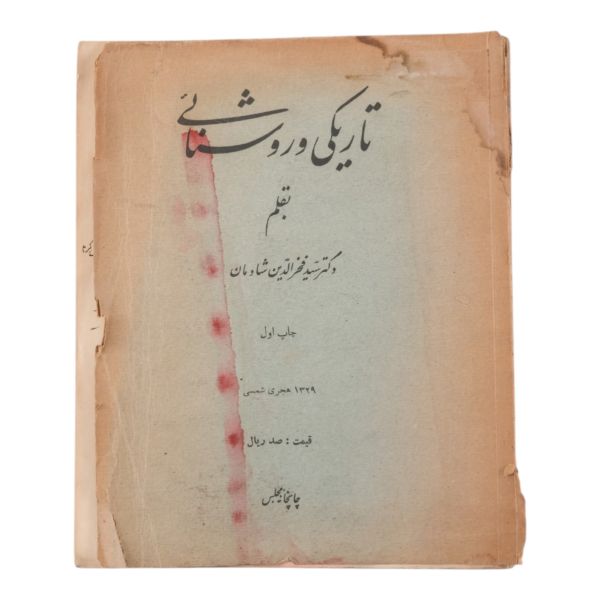 تاریکی و روشنائی
بقلم
دکتر سید فخرالدین شادمان
چاپ اول
۱۳۲۹ هجری شمسی
قیمت : صد ریال
چاپخانهٔ مجلس